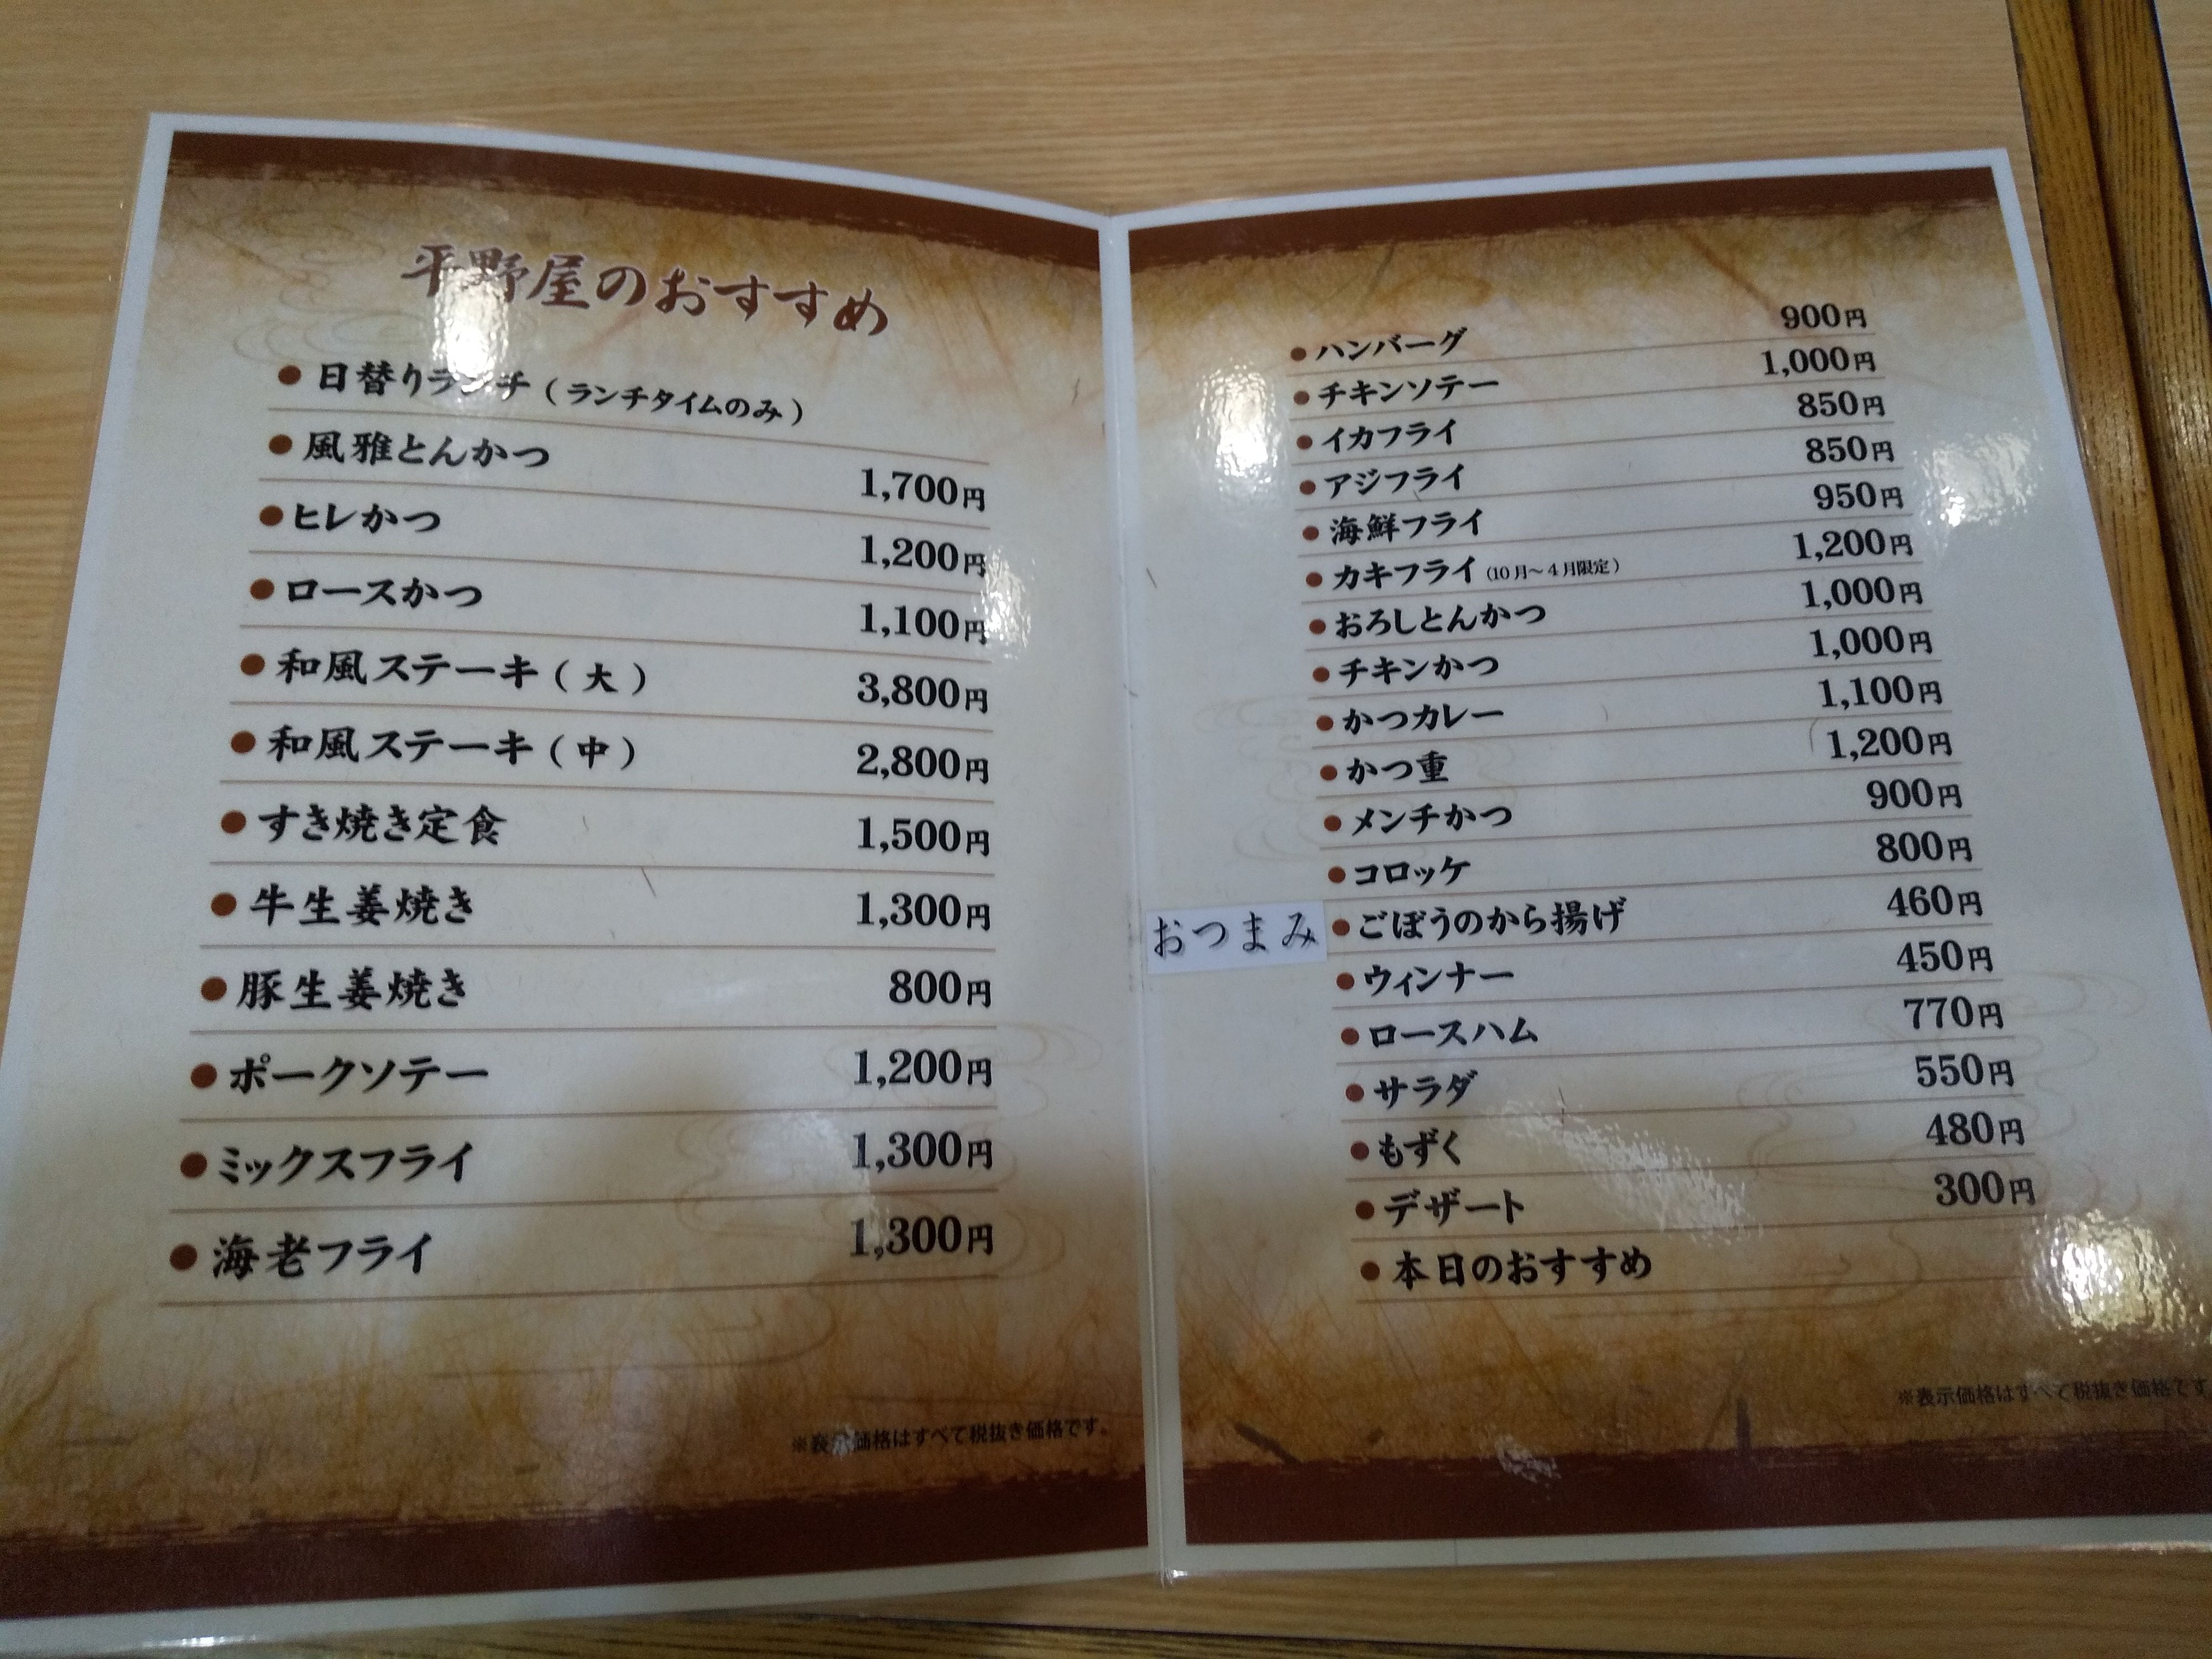 平野屋のおすすめ
●日替りランチ（ランチタイムのみ）
●風雅とんかつ 1,700円
●ヒレかつ 1,200円
●ロースかつ 1,100円
●和風ステーキ（大） 3,800円
●和風ステーキ（中） 2,800円
●すき焼き定食 1,500円
●牛生姜焼き 1,300円
●豚生姜焼き 800円
●ポークソテー 1,200円
●ミックスフライ 1,300円
●海老フライ 1,300円
※表示価格はすべて税抜き価格です。
●ハンバーグ 900円
●チキンソテー 1,000円
●イカフライ 850円
●アジフライ 850円
●海鮮フライ 950円
●カキフライ（10月～4月限定） 1,200円
●おろしとんかつ 1,000円
●チキンかつ 1,000円
●かつカレー 1,100円
●かつ重 1,200円
●メンチかつ 900円
●コロッケ 800円
おつまみ ●ごぼうのから揚げ 460円
●ウィンナー 450円
●ロースハム 770円
●サラダ 550円
●もずく 480円
●デザート 300円
●本日のおすすめ
※表示価格はすべて税抜き価格です